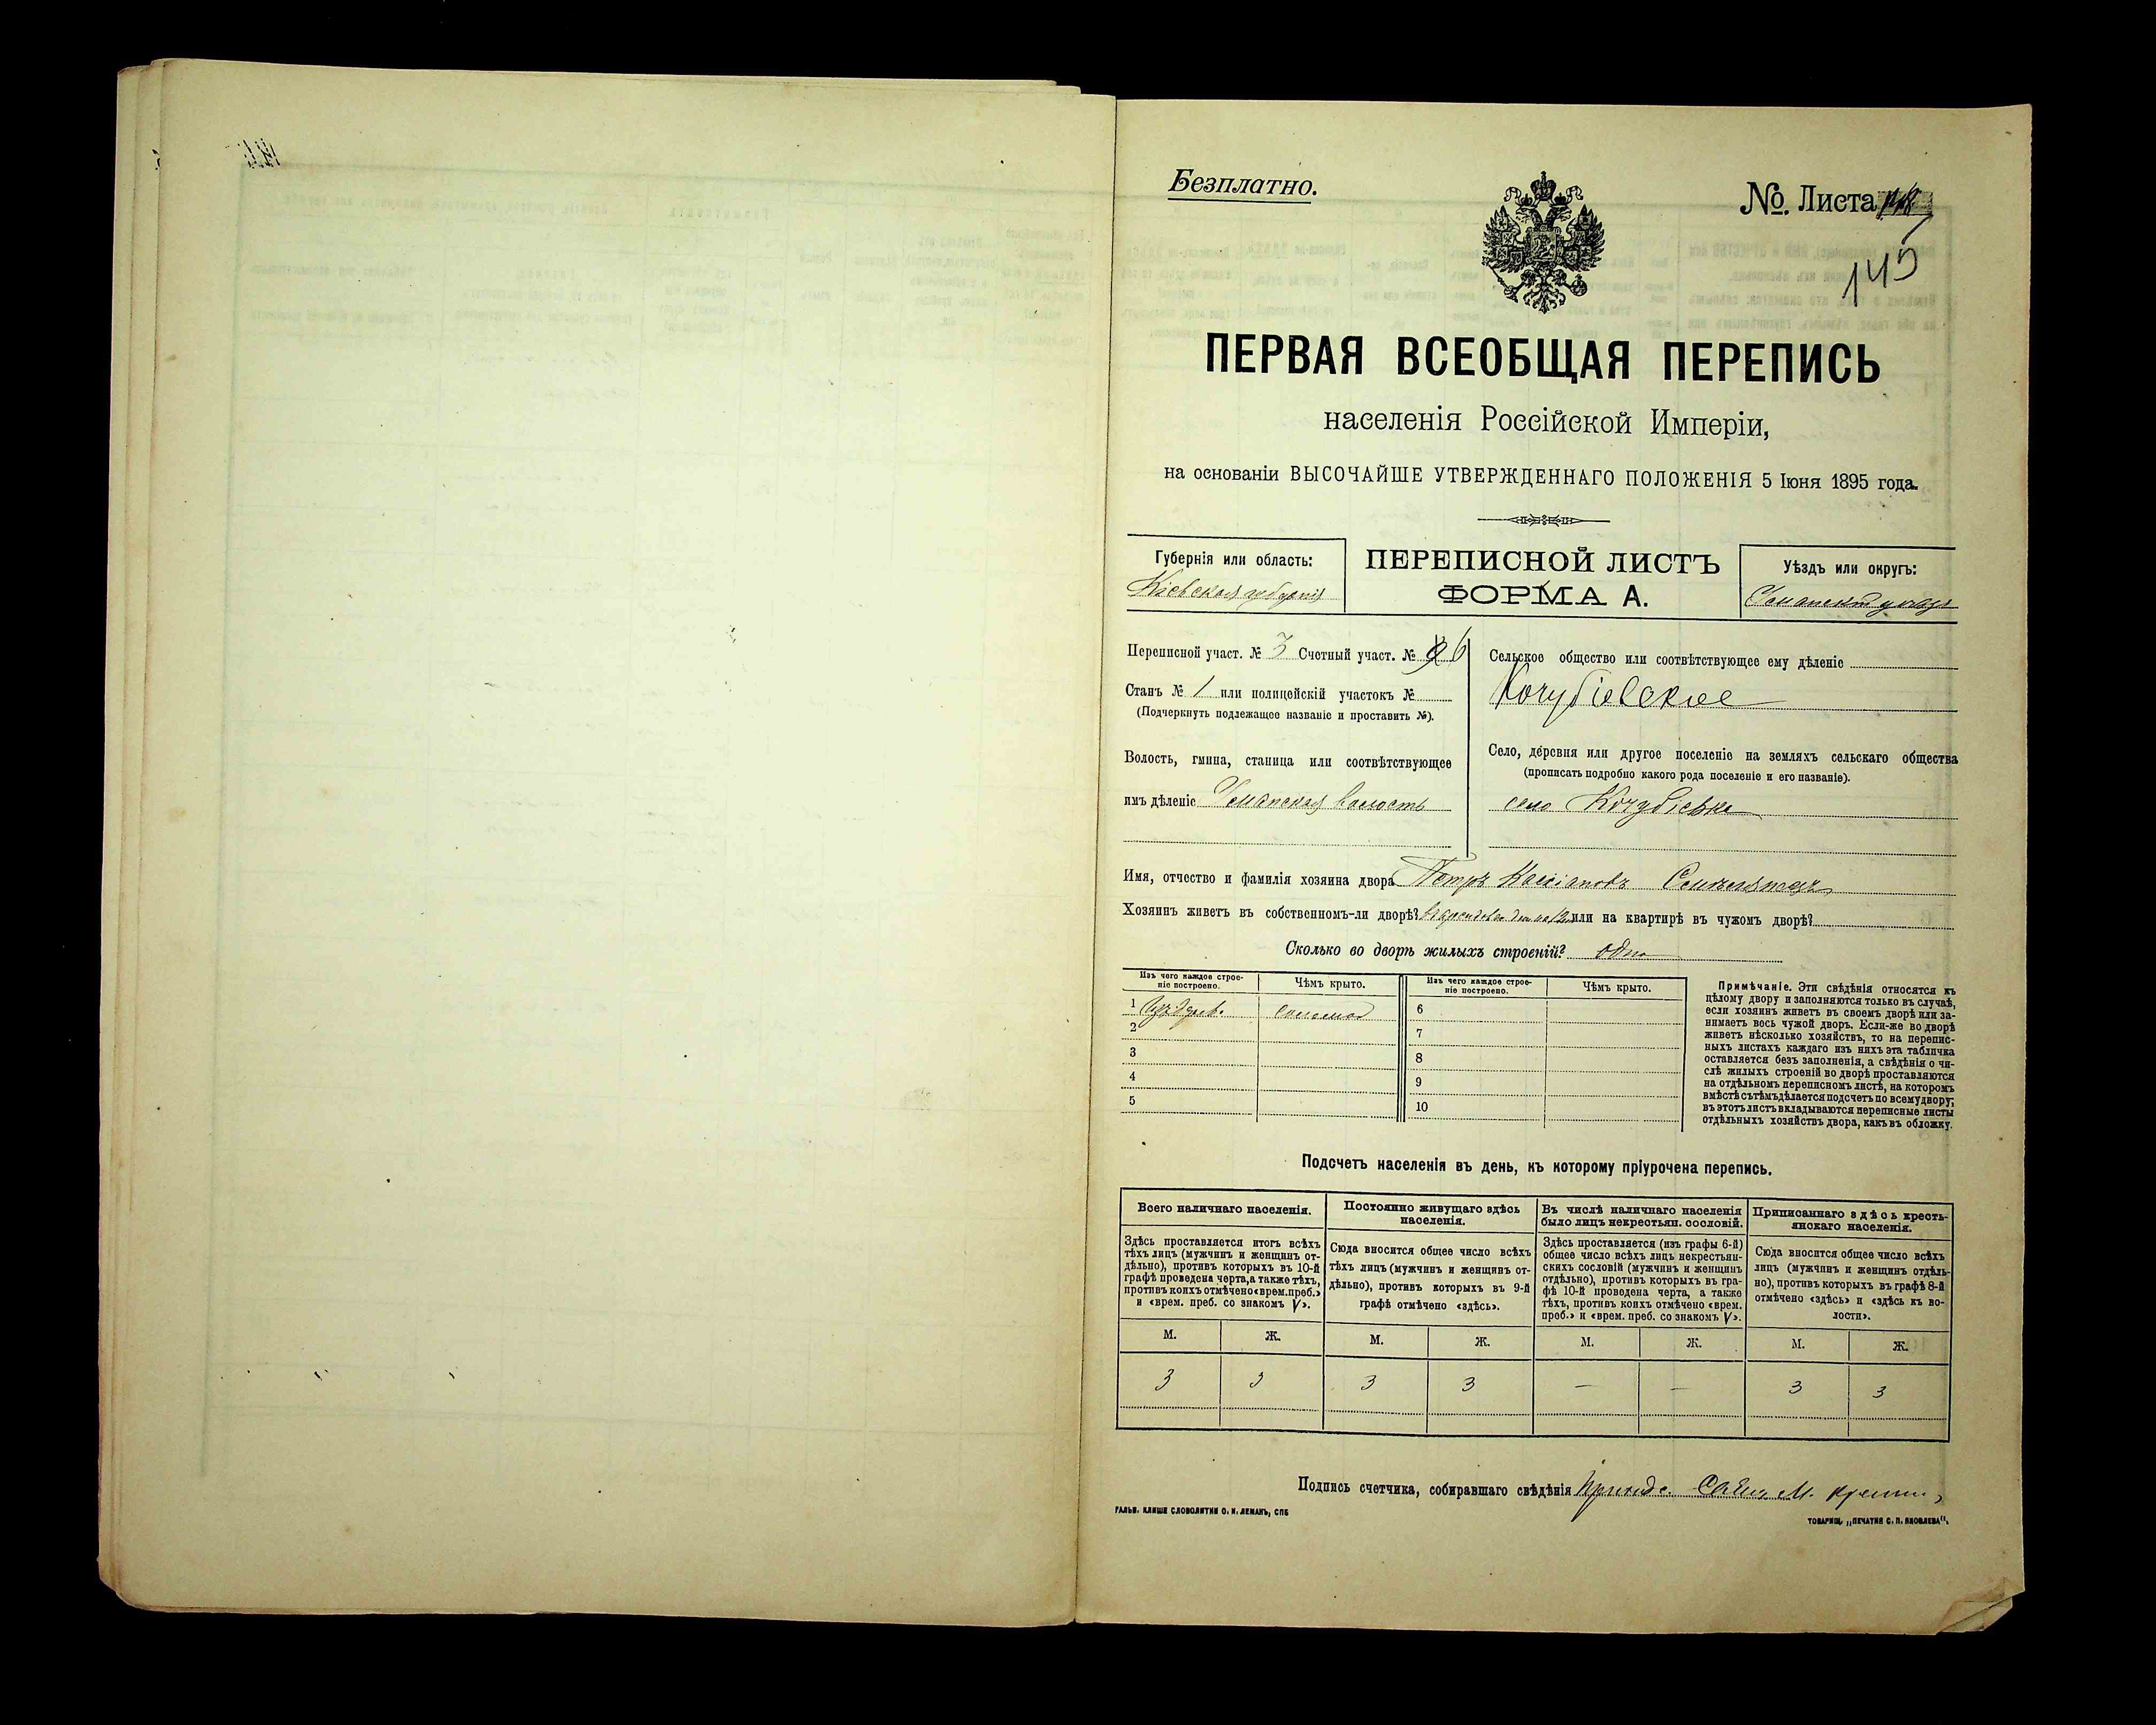 Безплатно.
No. Листа
145
ПЕРВАЯ ВСЕОБЩАЯ ПЕРЕПИСЬ
населенія Россійской Имперіи,
на основаніи ВЫСОЧАЙШЕ УТВЕРЖДЕННАГО ПОЛОЖЕНІЯ 5 Іюня 1895 года.
Губернія или область:
Кіевская губернія
ПЕРЕПИСНОЙ ЛИСТЪ
ФОРМА А.
Уѣздъ или округъ:
Уманскій уѣздъ
Переписной участ. № 3 Счетный участ. № 6
Станъ № 1 или полицейскій участокъ №
(Подчеркнуть подлежащее названіе и проставить №).
Волость, гмина, станица или соотвѣтствующее
имъ дѣленіе Уманская волость
Сельское общество или соотвѣтствующее ему дѣленіе
Кочубіевское
Село, деревня или другое поселеніе на земляхъ сельскаго общества
(прописать подробно какого рода поселеніе и его названіе).
село Кочубіевка
Имя, отчество и фамилія хозяина двора Петръ Кассіановъ
Хозяинъ живетъ въ собственномъ-ли дворѣ? или на квартирѣ въ чужомъ дворѣ?
Сколько во дворѣ жилыхъ строеній? одно
Изъ чего каждое строе-
ніе построено.
Чѣмъ крыто.
Изъ чего каждое строе-
ніе построено.
Чѣмъ крыто.
1 изъ дерев. соломой
2
3
4
5
6
7
8
9
10
Примѣчаніе. Эти свѣдѣнія относятся къ
цѣлому двору и заполняются только въ случаѣ,
если хозяинъ живетъ въ своемъ дворѣ или за-
нимаетъ весь чужой дворъ. Если-же во дворѣ
живетъ нѣсколько хозяйствъ, то на перепис-
ныхъ листахъ каждаго изъ нихъ эта табличка
оставляется безъ заполненія, а свѣдѣнія о чи-
слѣ жилыхъ строеній во дворѣ проставляются
на отдѣльномъ переписномъ листѣ, на которомъ
вмѣстѣ съ тѣмъ дѣлается подсчетъ по всему двору;
въ этотъ листъ вкладываются переписные листы
отдѣльныхъ хозяйствъ двора, какъ въ обложку.
Подсчетъ населенія въ день, къ которому пріурочена перепись.
Всего наличнаго населенія.
Здѣсь проставляется итогъ всѣхъ
тѣхъ лицъ (мужчинъ и женщинъ от-
дѣльно), противъ которыхъ въ 10-й
графѣ проведена черта, а также тѣхъ,
противъ коихъ отмѣчено «врем. преб.»
и «врем. преб. со знакомъ V».
М. Ж.
3 3
Постоянно живущаго здѣсь
населенія.
Сюда вносится общее число всѣхъ
тѣхъ лицъ (мужчинъ и женщинъ от-
дѣльно), противъ которыхъ въ 9-й
графѣ отмѣчено «здѣсь».
М. Ж.
3 3
Въ числѣ наличнаго населенія
было лицъ некрестьян. сословій.
Здѣсь проставляется (изъ графы 6-й)
общее число всѣхъ лицъ некрестьян-
скихъ сословій (мужчинъ и женщинъ
отдѣльно), противъ которыхъ въ гра-
фѣ 10-й проведена черта, а также
тѣхъ, противъ коихъ отмѣчено «врем.
преб.» и «врем. преб. со знакомъ V».
М. Ж.
— —
Приписаннаго здѣсь кресть-
янскаго населенія.
Сюда вносится общее число всѣхъ
лицъ (мужчинъ и женщинъ отдѣль-
но), противъ которыхъ въ графѣ 8-й
отмѣчено «здѣсь» и «здѣсь къ во-
лости».
М. Ж.
3 3
Подпись счетчика, собиравшаго свѣдѣнія
ГАЛЬВ. КЛИШЕ СЛОВОЛИТНИ О. И. ЛЕМАНЪ, СПБ
ТОВАРИЩ. „ПЕЧАТНЯ С. П. ЯКОВЛЕВА“.